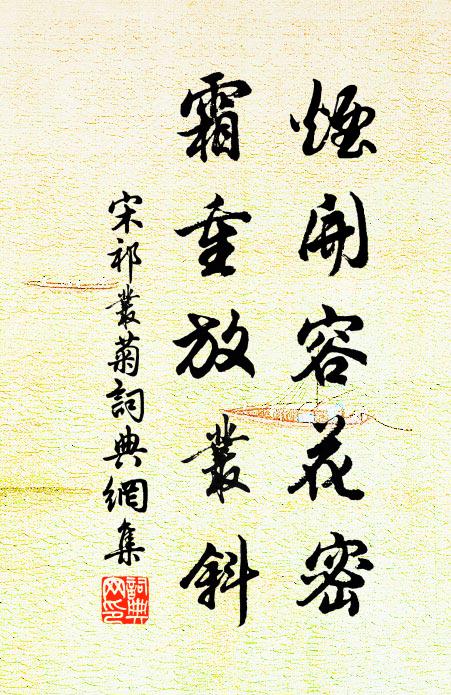 煙開容花密
霜重放叢斜
宋祁叢菊詞典網集
詞典網印